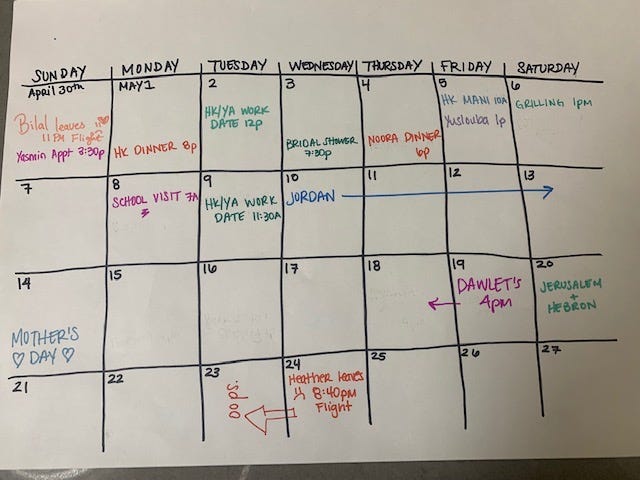 SUNDAY MONDAY TUESDAY WEDNESDAY THURSDAY FRIDAY SATURDAY
April 30th
Bilal leaves
11PM Flight
Yasmin Appt 3:30p
MAY 1
HK DINNER 8p
2
HK/YA WORK
DATE 12p
3
BRIDAL SHOWER
7:30p
4
NOORA DINNER
6p
5
HK MANI 10A
Yuslouba 1p
6
GRILLING 1PM
7
8
SCHOOL VISIT 7A
9
HK/YA WORK
DATE 11:30A
10
JORDAN
11
12
13
14
MOTHER'S
♡ DAY ♡
15
16
17
18
19
DAWLET'S
4pm
20
JERUSALEM
+
HEBRON
21
22
23
oops.
24
Heather leaves
8:40pm
Flight
25
26
27